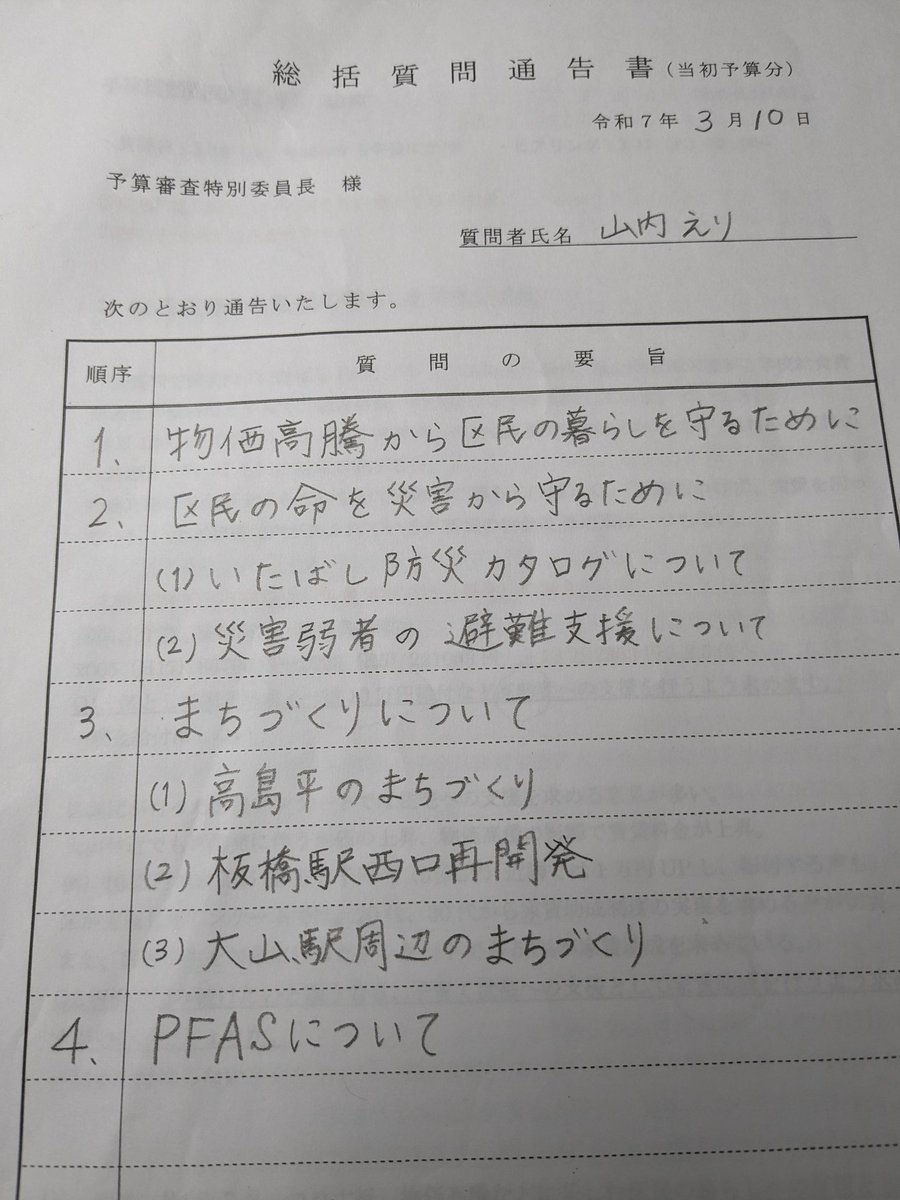 総括質問通告書(当初予算分)
令和7年3月10日
予算審査特別委員長 様
質問者氏名 山内えり
次のとおり通告いたします。
順序 質問の要旨
1、 物価高騰から区民の暮らしを守るために
2、 区民の命を災害から守るために
(1)いたばし防災カタログについて
(2)災害弱者の避難支援について
3、 まちづくりについて
(1)高島平のまちづくり
(2)板橋駅西口再開発
(3)大山駅周辺のまちづくり
4、 PFASについて